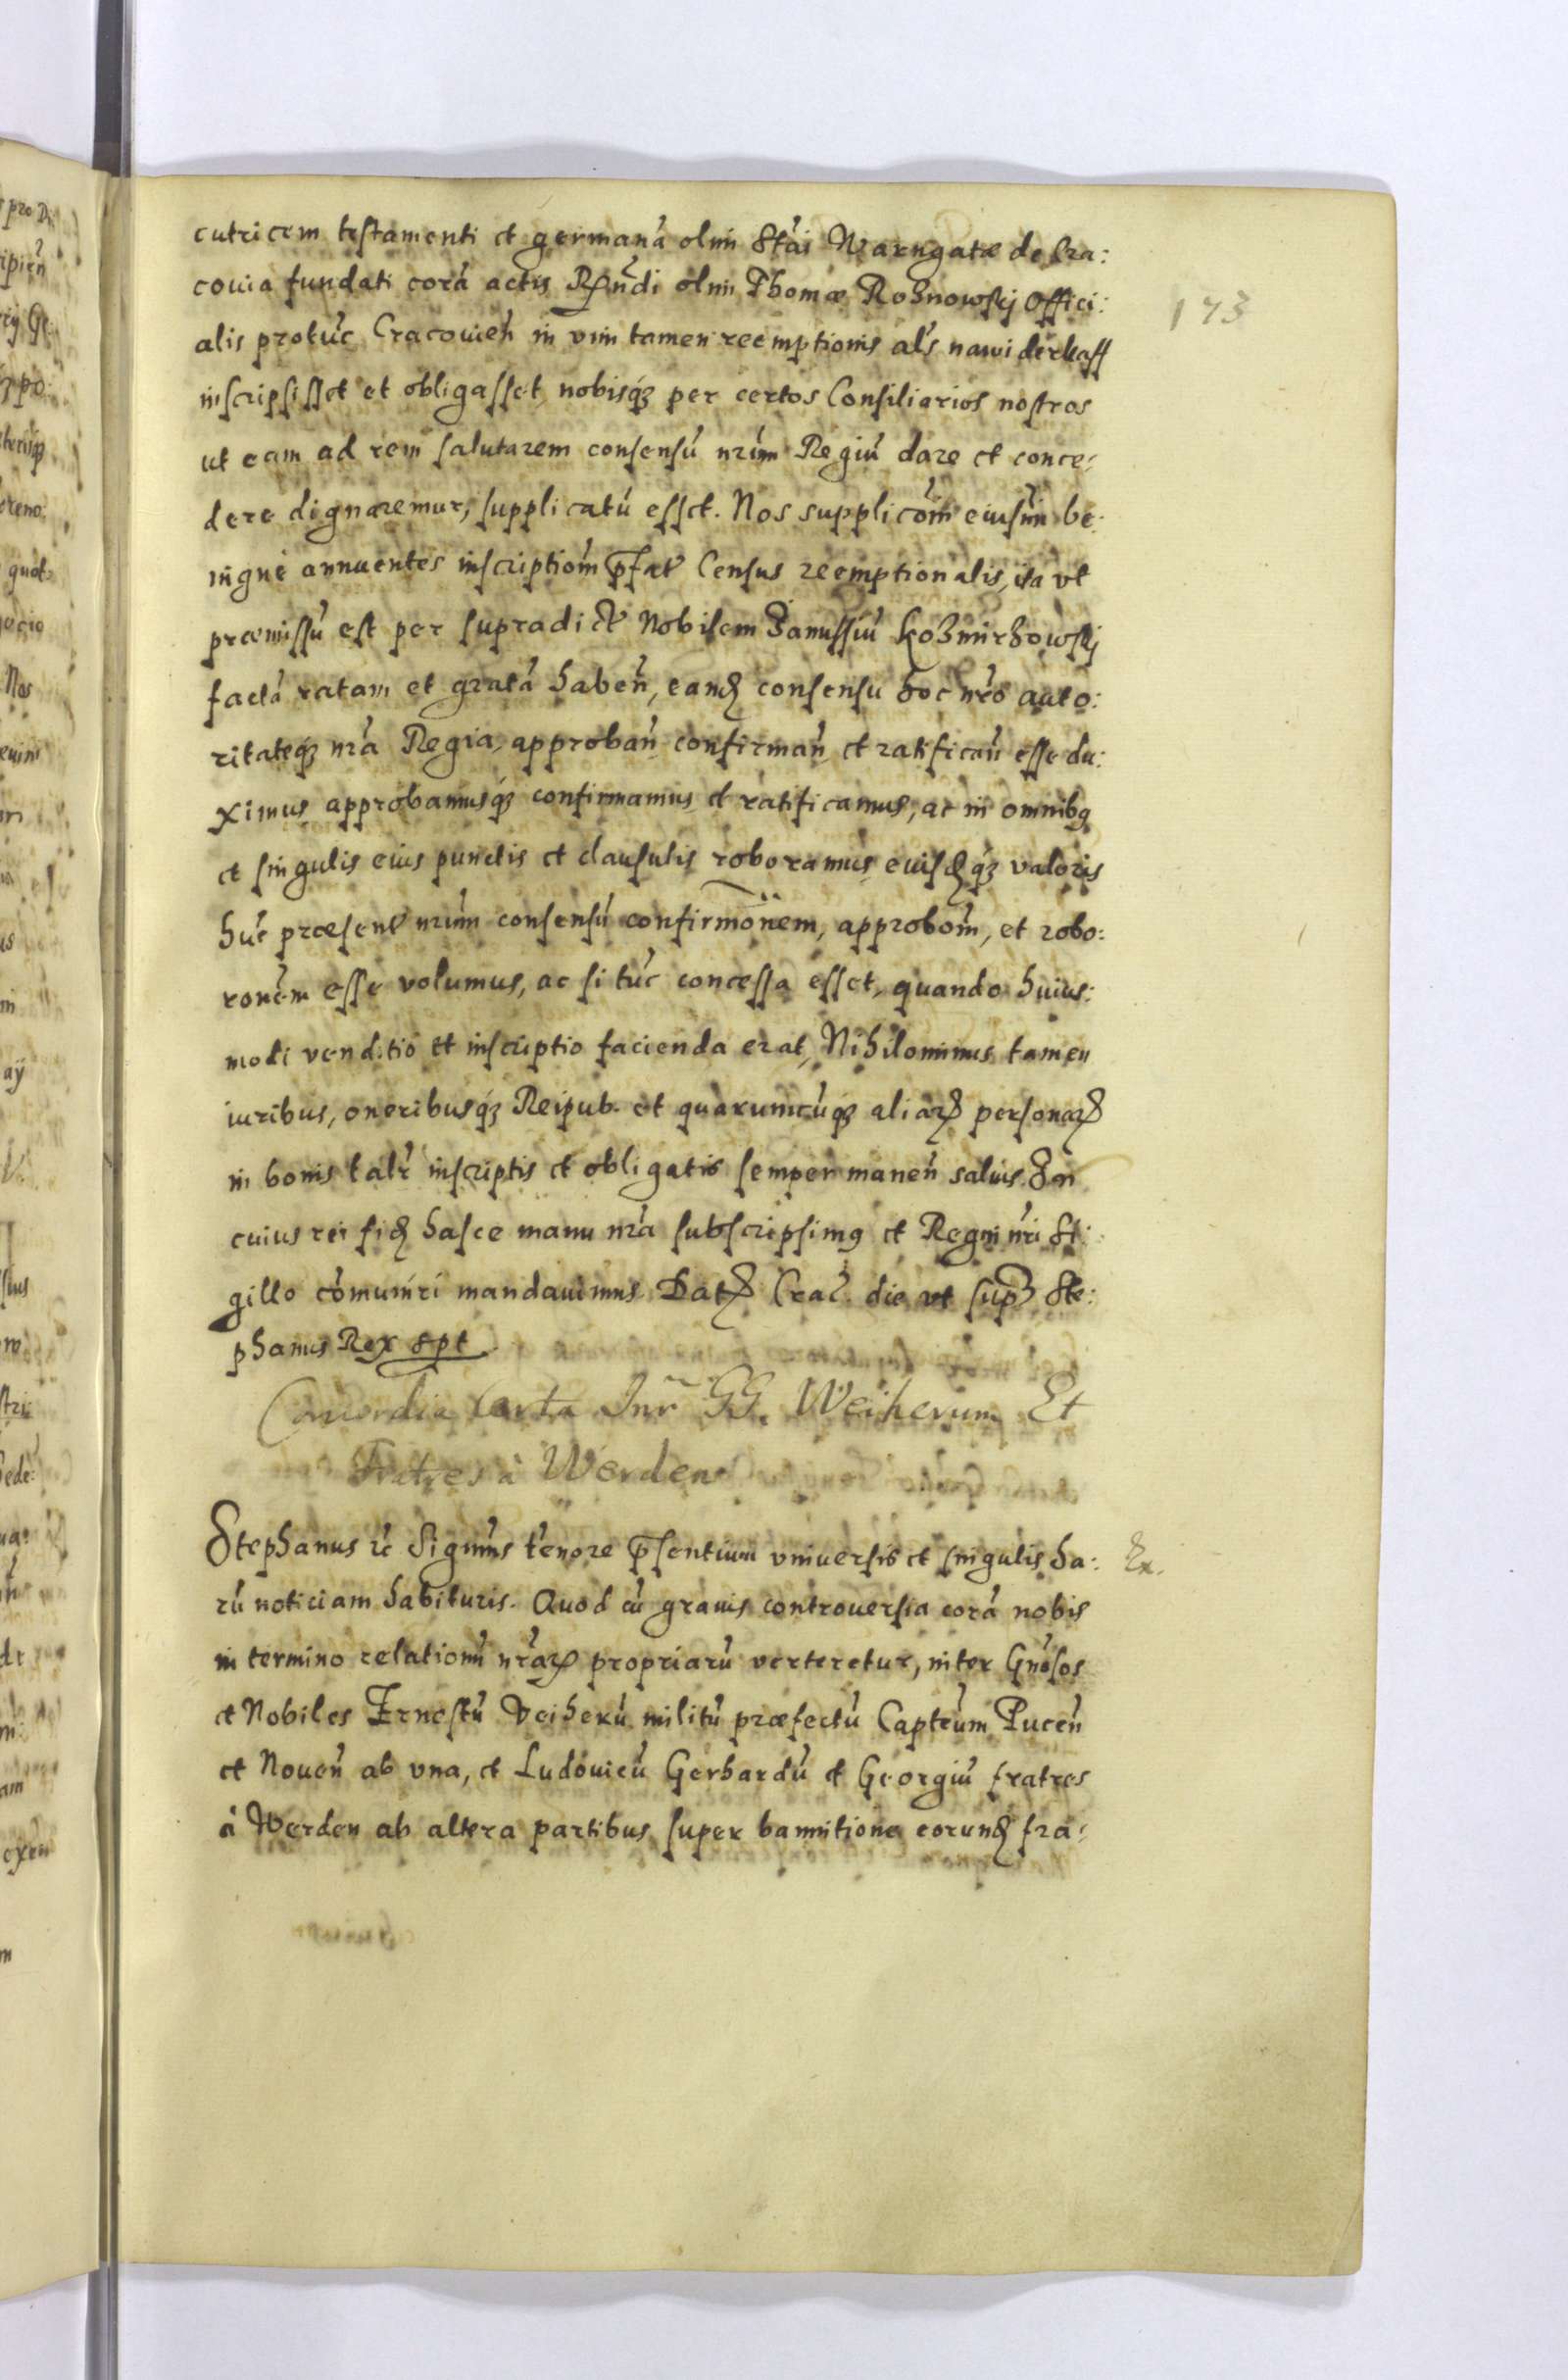 cutricem testamenti et germanā olim Stāi Warngatæ de Cra:
couia fundati corā actis Rp̄ndi olim Thomæ Rożnowskj Offici:
173
alis protūc Cracouień in vim tamen reemptionis als nawiderkaff
inscripsisset et obligasset, nobisq́ʒ per certos Consiliarios nostros
ut eam ad rem salutarem consensū nrūm Regiū dare et conce:
dere dignaremur, supplicatū esset. Nos supplicōm eiusm̄i be:
nigne annuentes inscriptiōm p̄fat Census reemptionalis, ita vt
præmissū est per supradict Nobilem Janussiū Kożmirżowskj
factā ratam et gratā habeñ, eandꝫ consensu hoc nr̄o auto:
ritateq́ʒ nrā Regia, approbañ confirmañ et ratificañ esse du:
ximus, approbamusq́ʒ confirmamus et ratificamus, ac in omnibꝰ
et singulis eius punctis et clausulis roboramus, eiusdꝫq́ʒ valoris
hūc præsent nrūm consensū confirmōnem, approbōm, et robo:
ronēm esse volumus, ac si tūc concessa esset, quando huius:
modi venditio et inscriptio facienda erat, Nihilominus tamen
iuribus, oneribusq́ʒ Reipub. et quarumcūqʒ aliarꝫ personarꝫ
in bonis talr inscriptis et obligatis semper maneñ saluis. In
cuius rei fidꝫ hasce manu nrā subscripsimꝰ et Regni nr̄i Si:
gillo cōmuniri mandauimus. Datꝫ Crac̄. die vt supꝫ Ste:
phanus Rex spt
Concordia Certa Inr̃ GG. Weiherum Et
Fratres à Werden
Stephanus rc̄ Signm̄s tenore p̄sentium vniuersis et singulis ha:
Ex.
rū noticiam habituris. Quod cū grauis controuersia corā nobis
in termino relationū nrārꝫ propriarū verteretur, inter Gnōsos
et Nobiles Ernestū Veiherū militū præfectū Captēum Puceñ
et Noueñ ab vna, et Ludouicū Gerhardū et Georgiū fratres
à Werden ab altera partibus, super bannitione eorundꝫ fra: